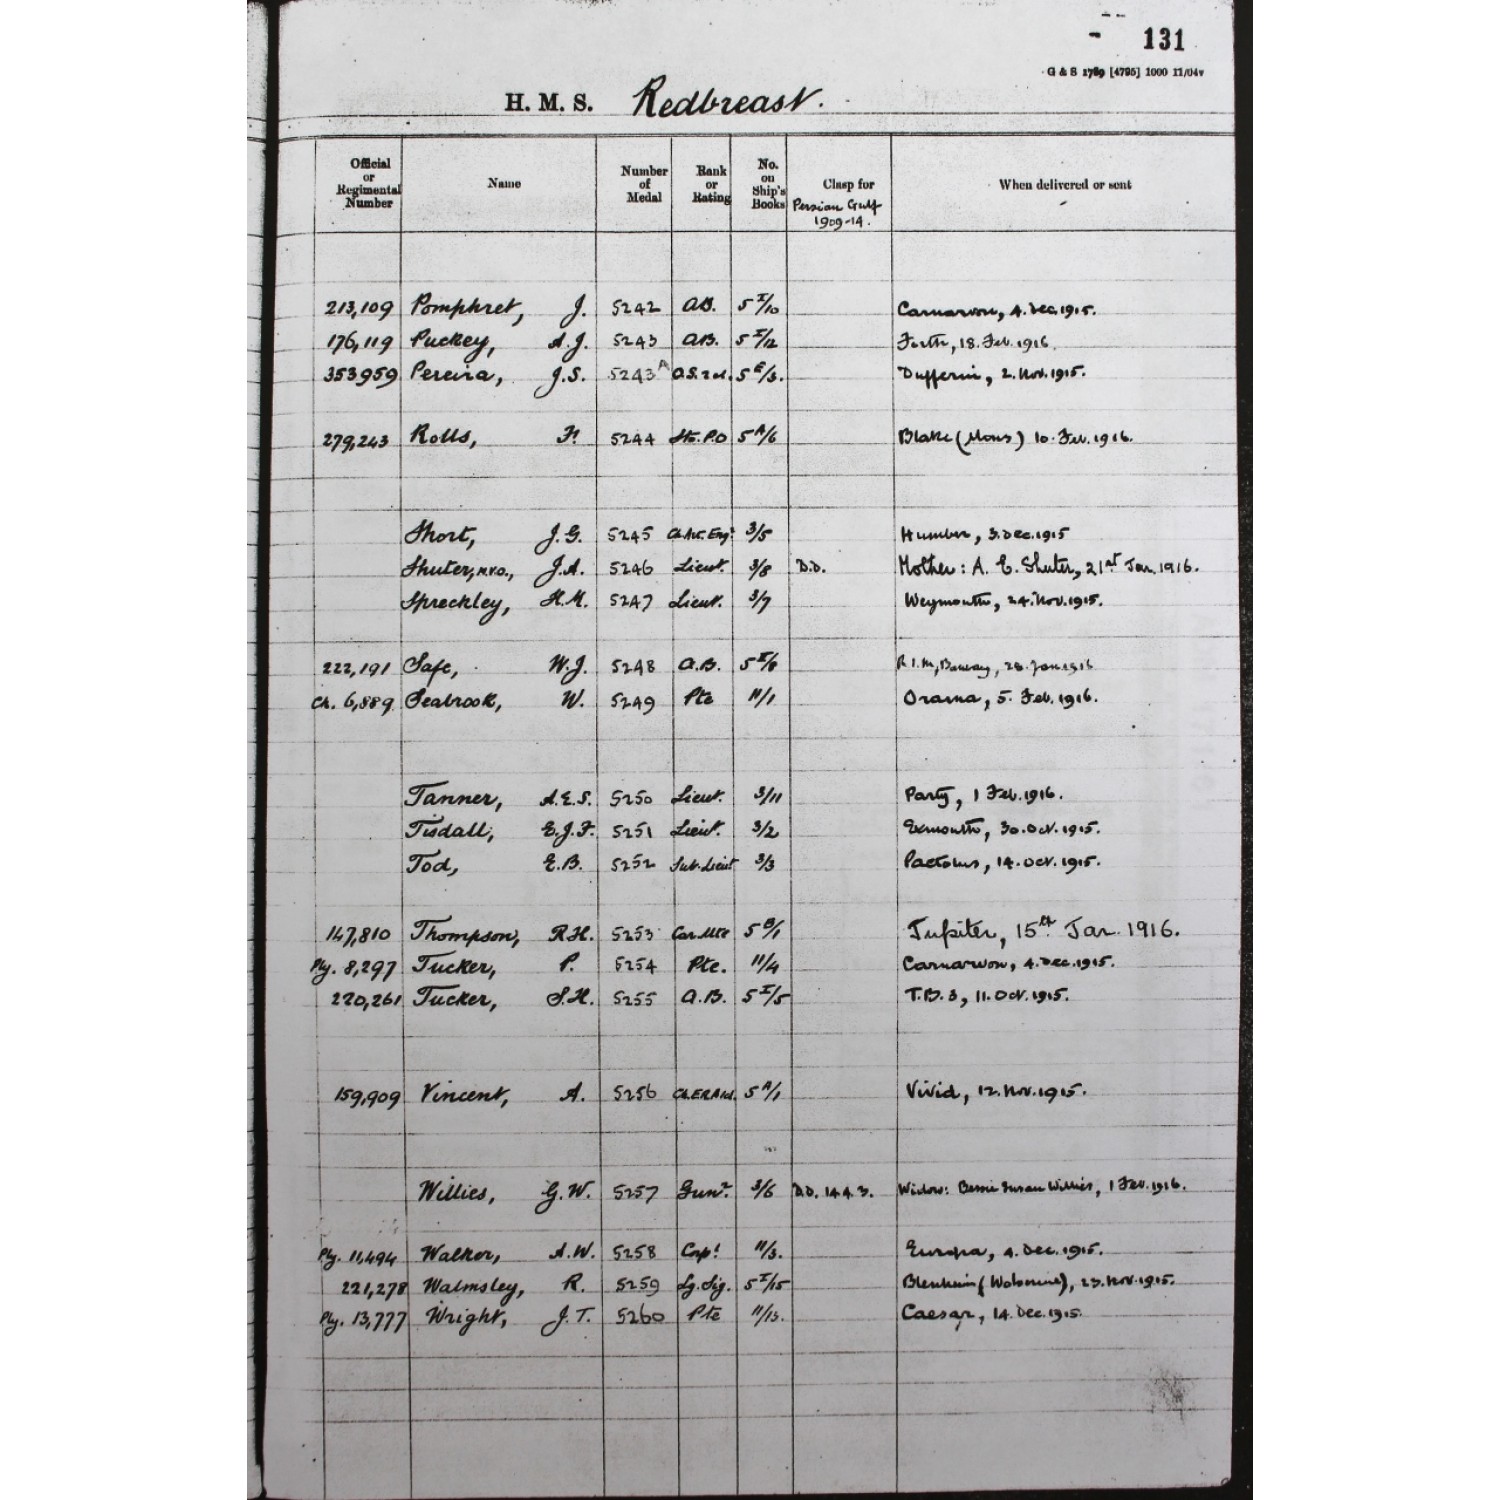 131
G & S 1769 [4795] 1000 11/04v
H. M. S. Redbreast.
Official or Regimental Number Name Number of Medal Rank or Rating No. on Ship's Books Clasp for Persian Gulf 1909-14. When delivered or sent
213,109 Pomphret, J. 5242 A.B. 5 I/10 Carnarvon, 4. Dec. 1915.
176,119 Puckey, A.J. 5243 A.B. 5 I/12 Forth, 18. Feb. 1916.
353959 Pereira, J.S. 5243A O.S. 2cl. 5 E/3. Dufferin, 2. Nov. 1915.
279,243 Rolls, F. 5244 Sto. P.O 5 A/6 Blake (Mons) 10. Feb. 1916.
Short, J.G. 5245 Ch. Art. Engr 3/5 Humber, 3. Dec. 1915
Shuter, M.V.O., J.A. 5246 Lieut. 3/8 D.D. Mother: A. E. Shuter, 21st Jan. 1916.
Spreckley, H.M. 5247 Lieut. 3/7 Weymouth, 24. Nov. 1915.
222,191 Safe, W.J. 5248 A.B. 5 I/8 R.I.M., Bombay, 28. Jan 1916
Ch. 6,889 Seabrook, W. 5249 Pte 11/1 Orama, 5. Feb. 1916.
Tanner, A.E.S. 5250 Lieut. 3/11 Party, 1 Feb. 1916.
Tisdall, E.J.F. 5251 Lieut. 3/2 Exmouth, 30. Oct. 1915.
Tod, E.B. 5252 Sub. Lieut 3/3 Pactolus, 14. Oct. 1915.
147,810 Thompson, R.H. 5253 Car. Mte 5 B/1 Jupiter, 15th Jan. 1916.
Ply. 8,297 Tucker, P. 5254 Pte. 11/4 Carnarvon, 4. Dec. 1915.
220,261 Tucker, S.H. 5255 A.B. 5 I/5 T.B. 3, 11. Oct. 1915.
159,909 Vincent, A. 5256 Ch. E.R.A. 5 A/1 Vivid, 12. Nov. 1915.
Willies, G.W. 5257 Gunr. 3/6 D.D. 1443. Widow: Bessie Susan Willies, 1 Feb. 1916.
Ply. 11,494 Walker, A.W. 5258 Corpl 11/3. Europa, 4. Dec. 1915.
221,278 Walmsley, R. 5259 Lg. Sig. 5 I/15 Blenheim (Wolverine), 23. Nov. 1915.
Ply. 13,777 Wright, J.T. 5260 Pte 11/13. Caesar, 14. Dec. 1915.